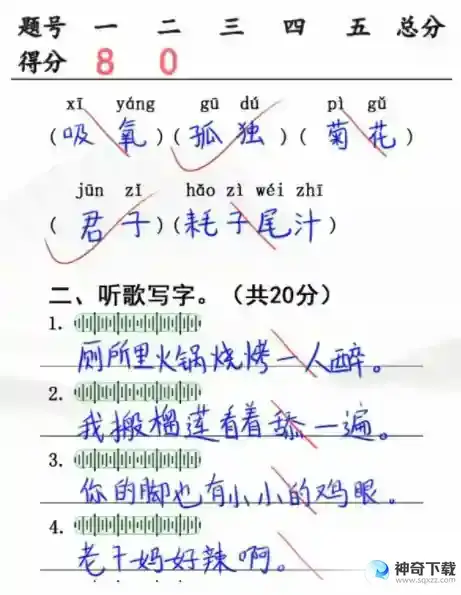 题号 一 二 三 四 五 总分
得分 8 0
xī yáng gū dú pì gǔ
(吸氧)(孤独)(菊花)
jūn zǐ hǎo zì wéi zhī
(君子)(耗子尾汁)
二、听歌写字。(共20分)
1.
厕所里火锅烧烤一人醉。
2.
我搬榴莲看着舔一遍。
3.
你的脚也有小小的鸡眼。
4.
老干妈好辣啊。
神奇下载
www.sqxzz.com